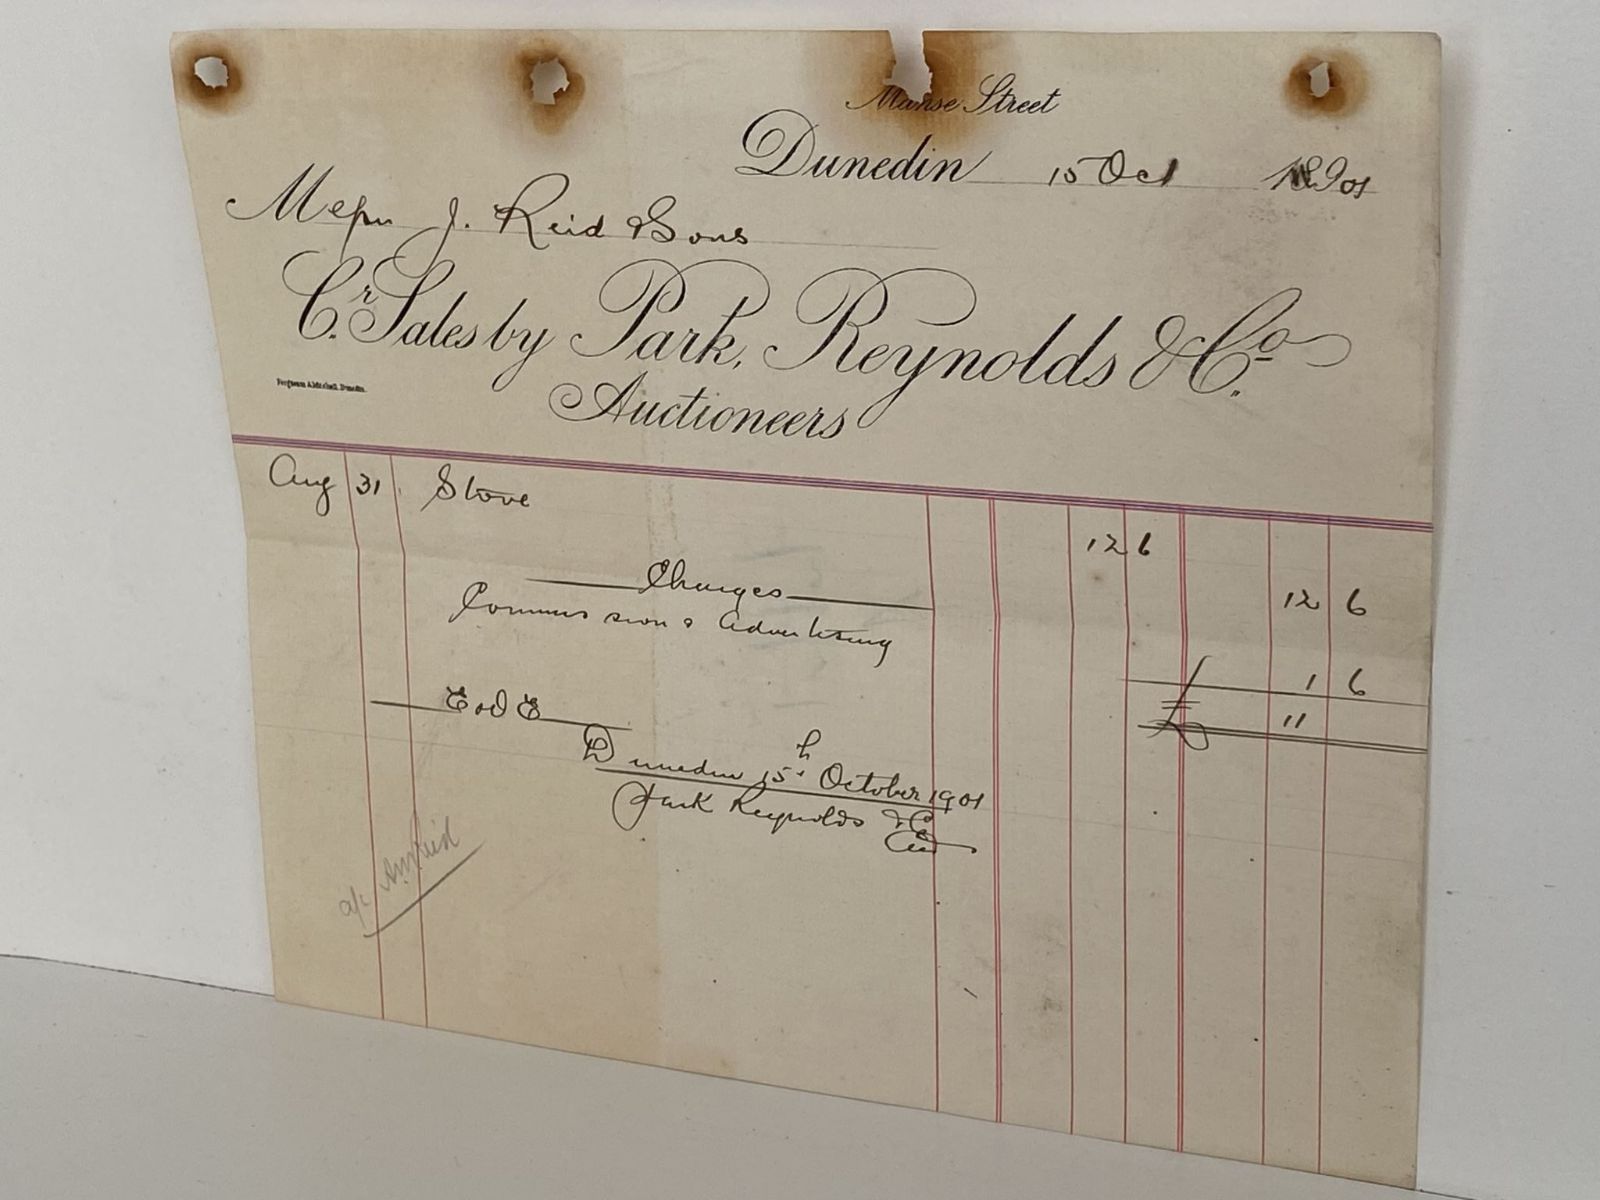 Manse Street
Dunedin 15 Oct 1901
Messrs J. Reid & Sons
Cr. Sales by Park, Reynolds & Co.
Auctioneers
Ferguson & Mitchell, Dunedin.
Aug 31 Stove
12 6
Charges 12 6
Commission & Advertising
1 6
E & O E £ 11
Dunedin 15th October 1901
Park Reynolds & Co
a/c